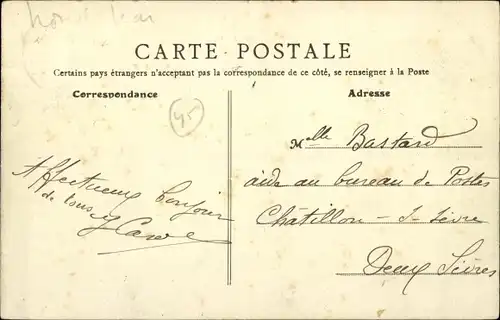 CARTE POSTALE
Certains pays étrangers n'acceptant pas la correspondance de ce côté, se renseigner à la Poste
Correspondance
Adresse
45
Affectueux bonjour
de tous
Melle Bastard
aide au bureau de Postes
Châtillon - s- Sèvre
Deux Sèvres